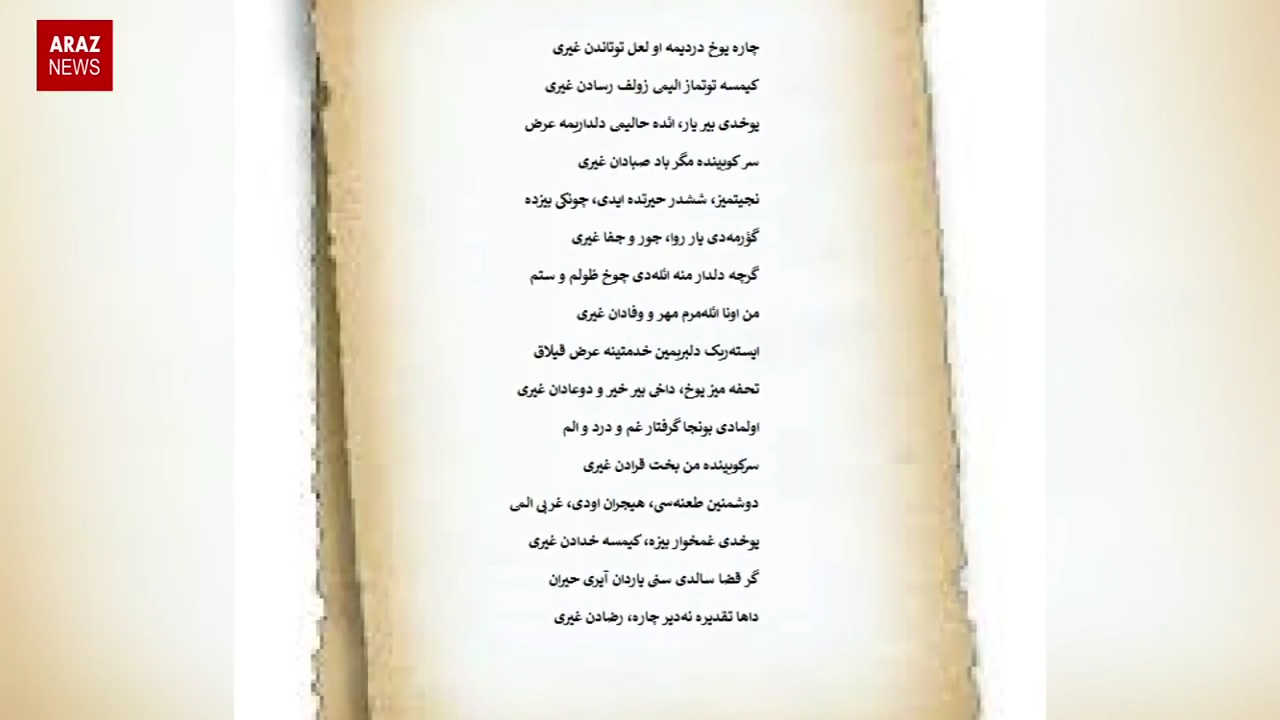 ARAZ
NEWS
چاره یوخ دردیمه او لعل توتاندن غیری
کیمسه توتماز الیمی زولف رسادن غیری
یوخدی بیر یار، ائده حالیمی دلداریمه عرض
سر کویینده مگر باد صبادان غیری
نجیتمیز، ششدر حیرتده ایدی، چونکی بیزده
گؤرمه‌دی یار روا، جور و جفا غیری
گرچه دلدار منه ائله‌دی چوخ ظولم و ستم
من اونا ائله‌مرم مهر و وفادان غیری
ایسته‌ریک دلبریمین خدمتینه عرض قیلاق
تحفه میز یوخ، داخی بیر خیر و دوعادان غیری
اولمادی بونجا گرفتار غم و درد و الم
سرکوبینده من بخت قرادن غیری
دوشمنین طعنه‌سی، هیجران اودی، غربی المی
یوخدی غمخوار بیزه، کیمسه خدادن غیری
گر قضا سالدی سنی یاردان آیری حیران
داها تقدیره نه‌دیر چاره، رضادن غیری